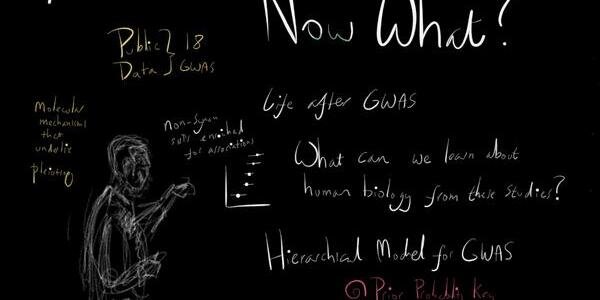 Now What?
Public } 18
Data } GWAS
Life after GWAS
Molecular
mechanisms
that
underlie
pleiotropy
Non-synon
SNPs enriched
for associations
What can we learn about
human biology from these studies?
Hierarchical Model for GWAS
Prior Probability Key